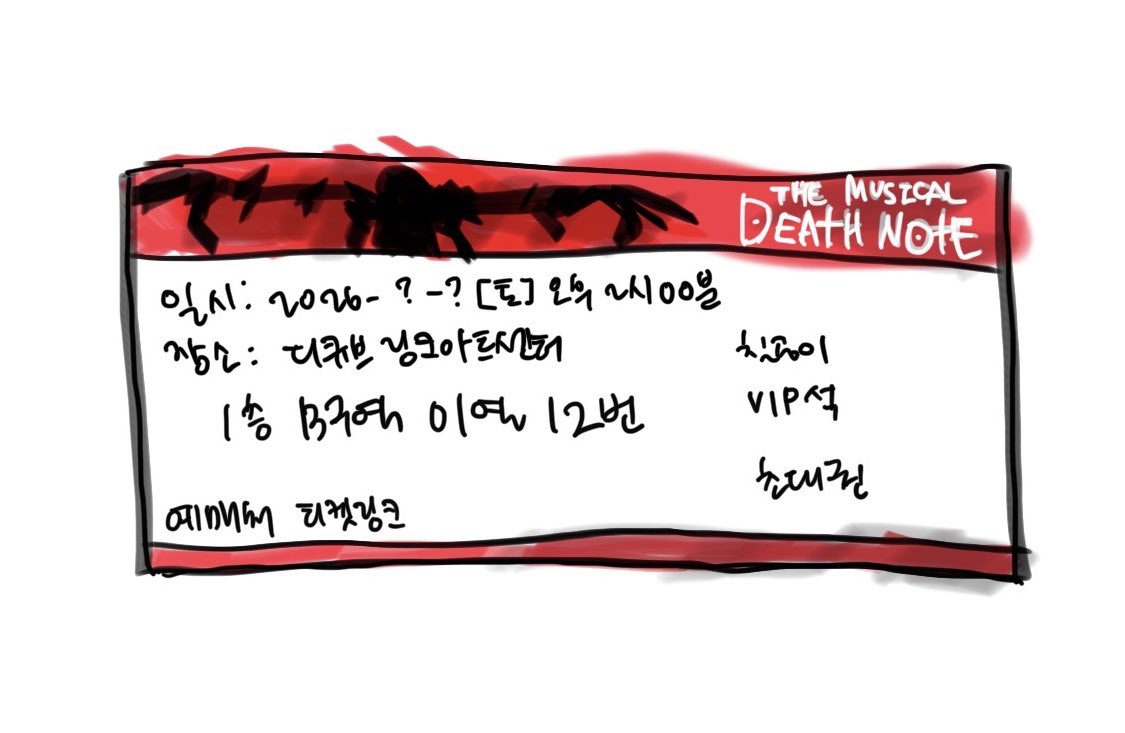 THE MUSICAL
DEATH NOTE
일시: 2026-?-? [토] 오후 2시 00분
장소: 디큐브 링크아트센터
1층 B구역 01열 12번
VIP석
초대권
예매처 티켓링크